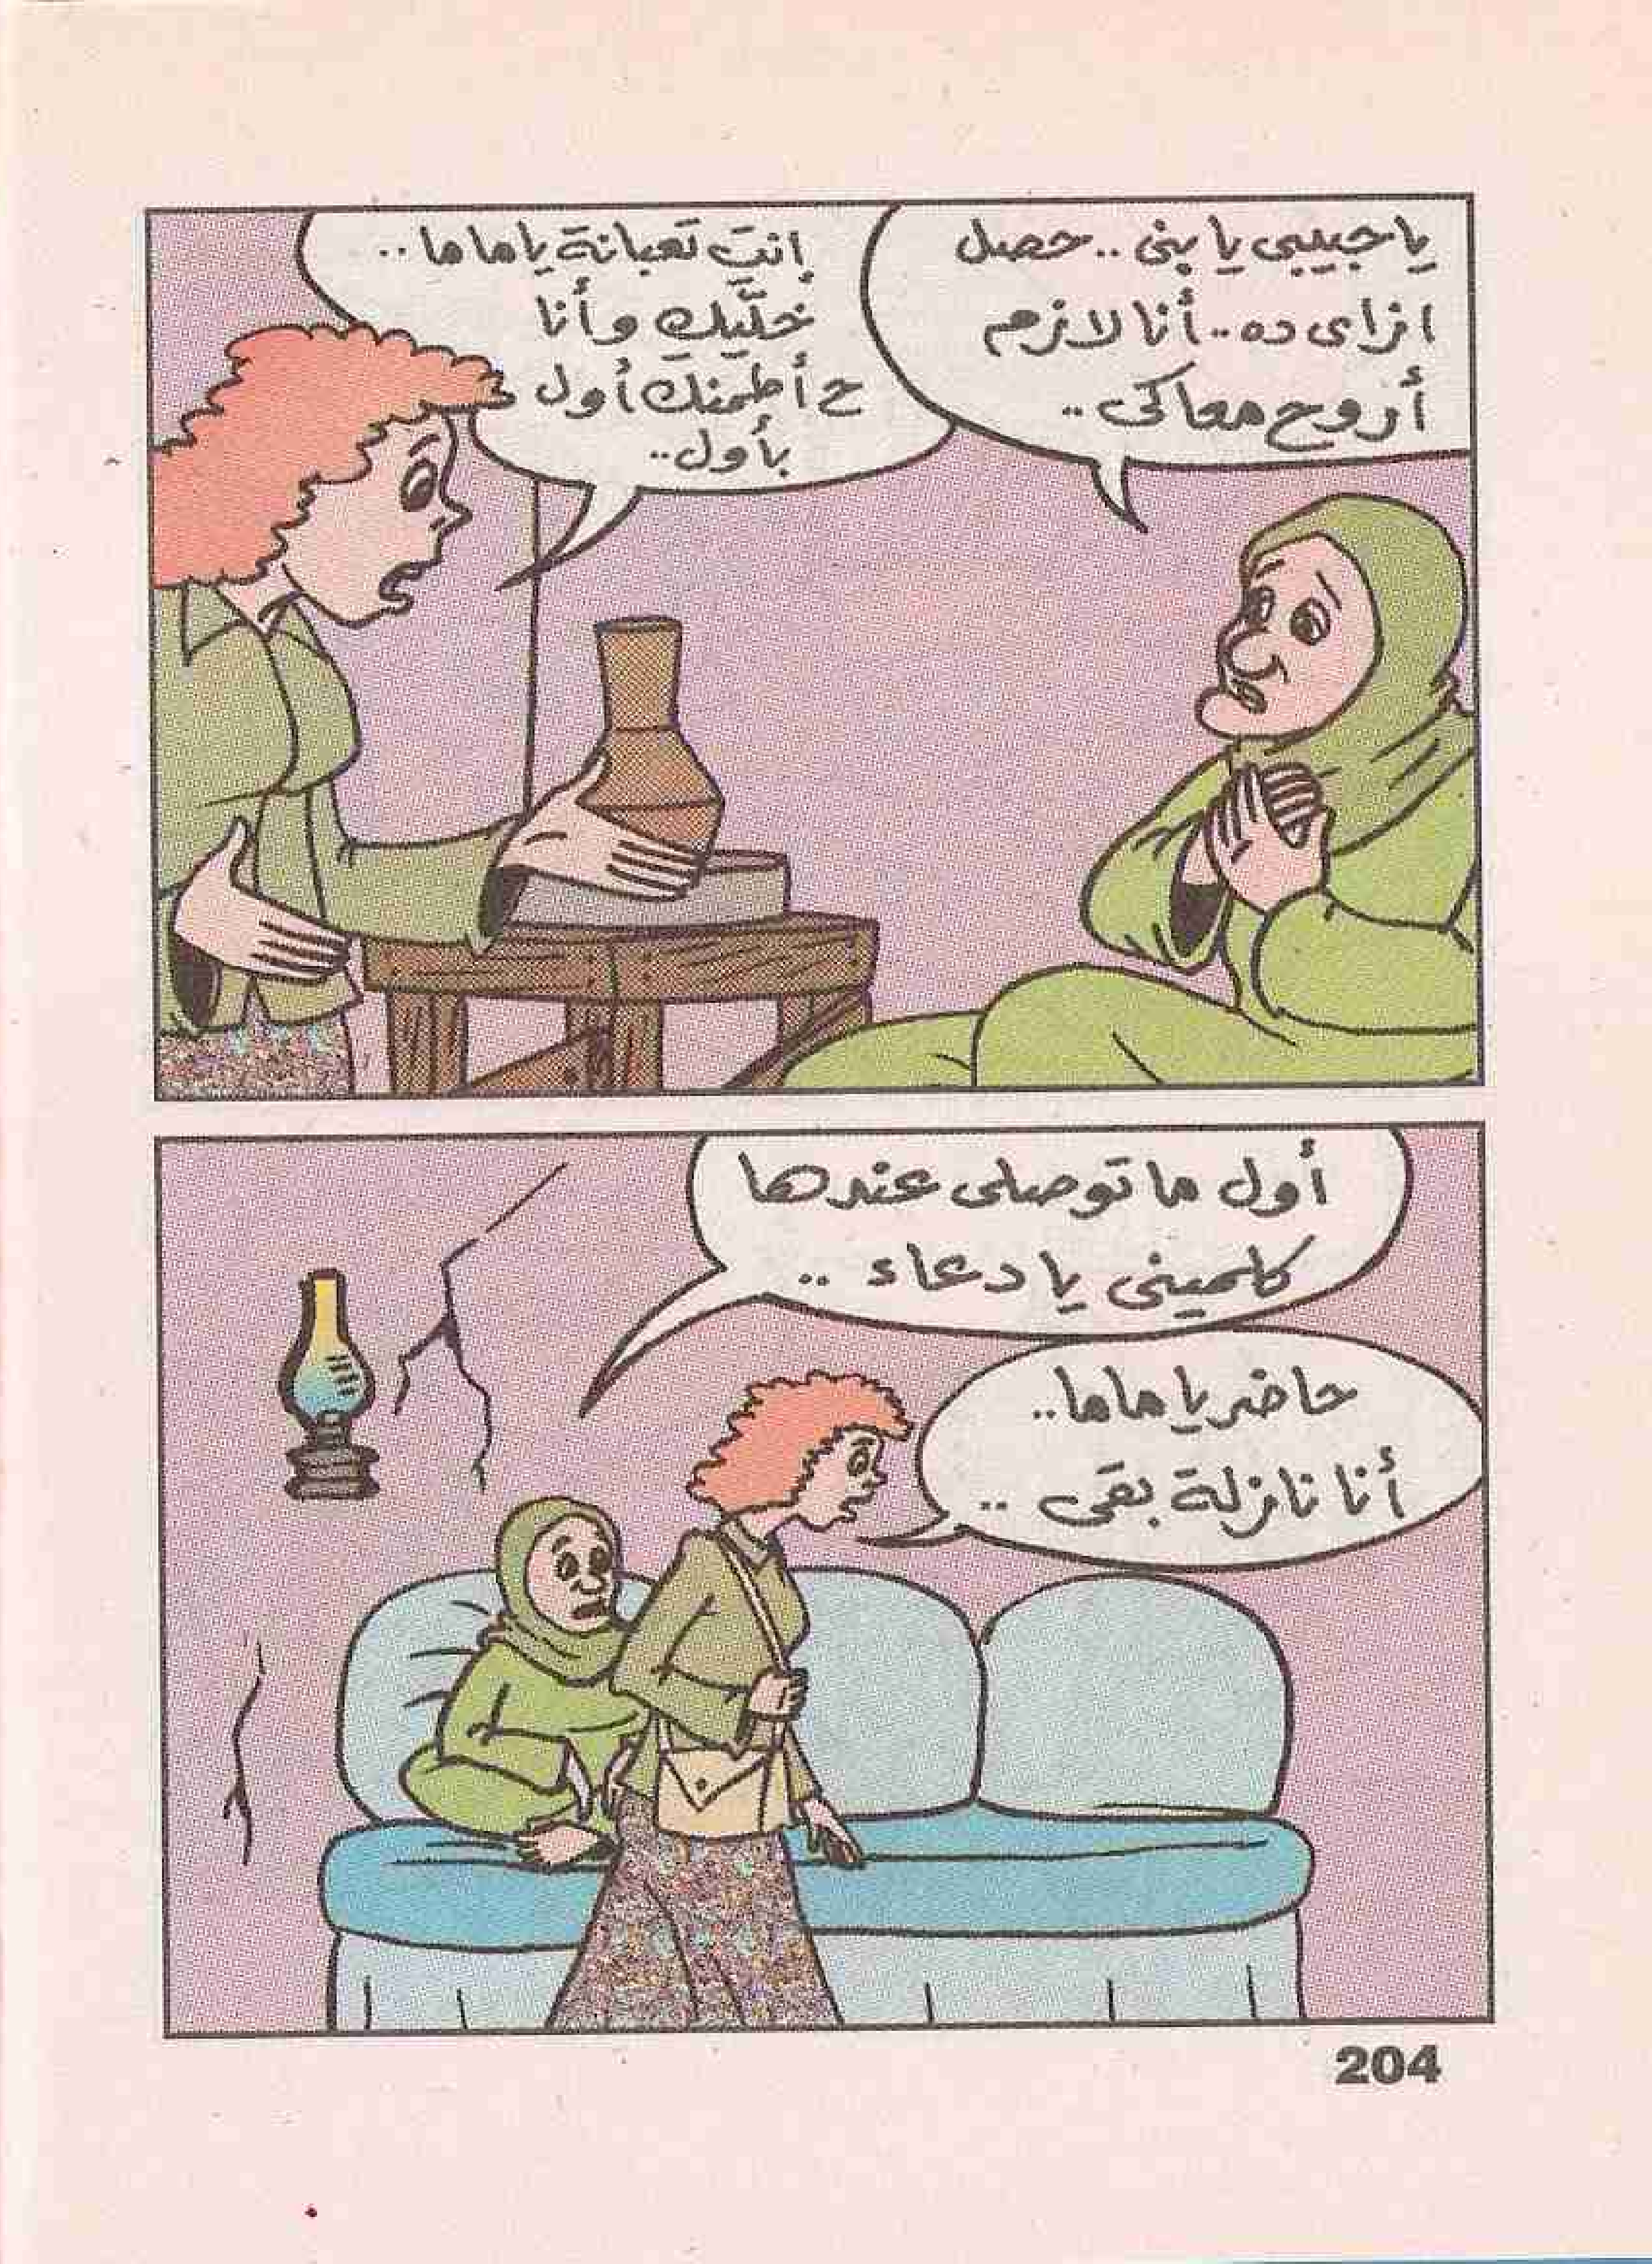 يا حبيبى يا بنى .. حصل
ازاى ده .. أنا لازم
أروح معاكى ..
إنتِ تعبانة يا ماما ..
خلّيكِ وأنا
ح أطمنك أول
بأول ..
أول ما توصلى عندها
كلمينى يا دعاء ..
حاضر يا ماما ..
أنا نازلة بقى ..
204